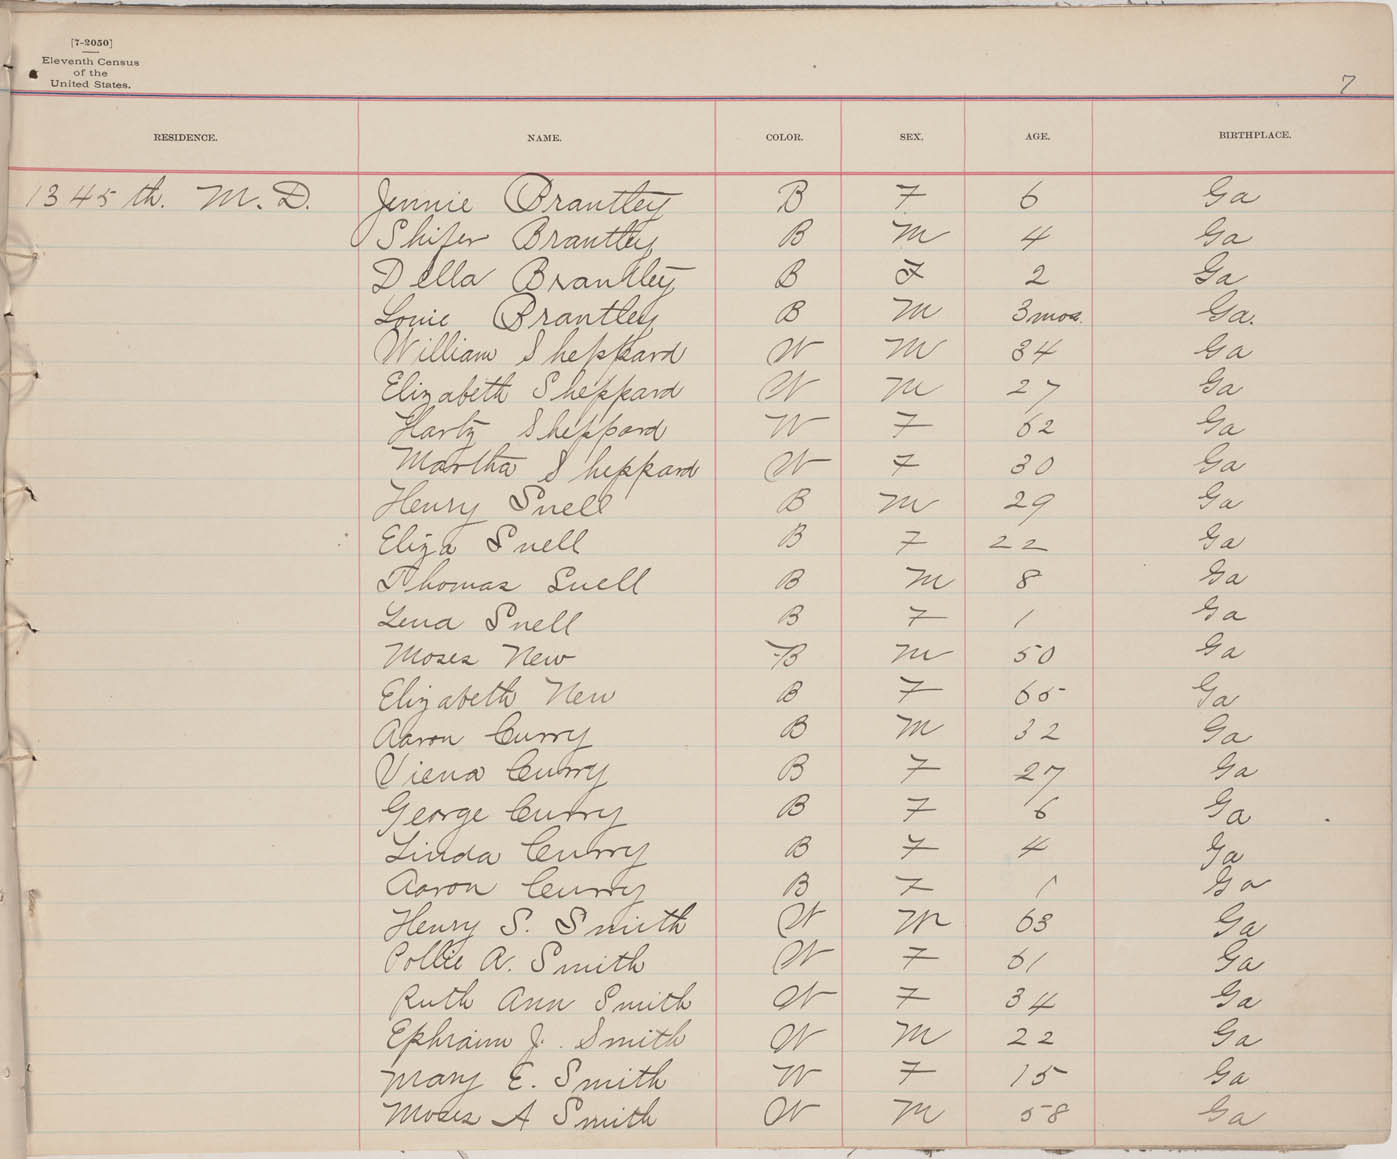 [7-2050]
Eleventh Census
of the
United States.
7
RESIDENCE. NAME. COLOR. SEX. AGE. BIRTHPLACE.
1345th. M. D. Jennie Brantley B F 6 Ga
Shifer Brantley B M 4 Ga
Della Brantley B F 2 Ga
Louie Brantley B M 3 mos. Ga.
William Sheppard W M 34 Ga
Elizabeth Sheppard W M 27 Ga
Hartz Sheppard W F 62 Ga
Martha Sheppard W F 30 Ga
Henry Snell B M 29 Ga
Eliza Snell B F 22 Ga
Thomas Snell B M 8 Ga
Lena Snell B F 1 Ga
Moses New B M 50 Ga
Elizabeth New B F 65 Ga
Aaron Curry B M 32 Ga
Viena Curry B F 27 Ga
George Curry B F 6 Ga
Linda Curry B F 4 Ga
Aaron Curry B F 1 Ga
Henry S. Smith W M 63 Ga
Pollie A. Smith W F 61 Ga
Ruth Ann Smith W F 34 Ga
Ephraim J. Smith W M 22 Ga
Mary E. Smith W F 15 Ga
Moses A Smith W M 58 Ga